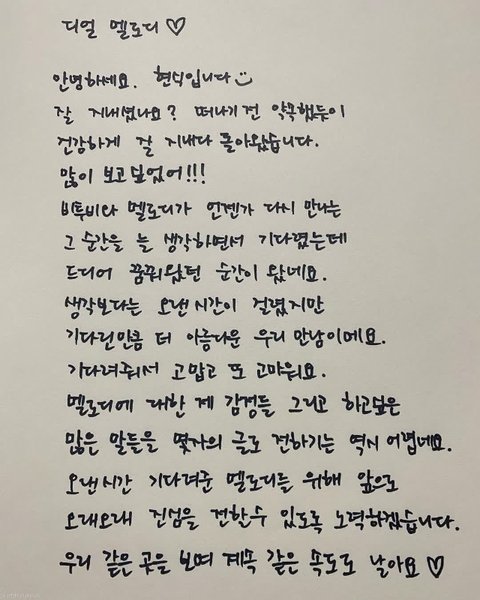 디얼 멜로디♡
안녕하세요. 현식입니다
잘 지내셨나요? 떠나기 전 약속했듯이
건강하게 잘 지내다 돌아왔습니다.
많이 보고싶었어!!!
비투비와 멜로디가 언젠가 다시 만나는
그 순간을 늘 생각하면서 기다렸는데
드디어 꿈꿔왔던 순간이 왔네요.
생각보다는 오랜 시간이 걸렸지만
기다린만큼 더 아름다운 우리 만남이에요.
기다려줘서 고맙고 또 고마워요.
멜로디에 대한 제 감정들 그리고 하고싶은
많은 말들을 몇자의 글로 전하기는 역시 어렵네요.
오랜시간 기다려준 멜로디를 위해 앞으로
오래오래 진심을 전할수 있도록 노력하겠습니다.
우리 같은 곳을 보며 계속 같은 속도로 날아요♡